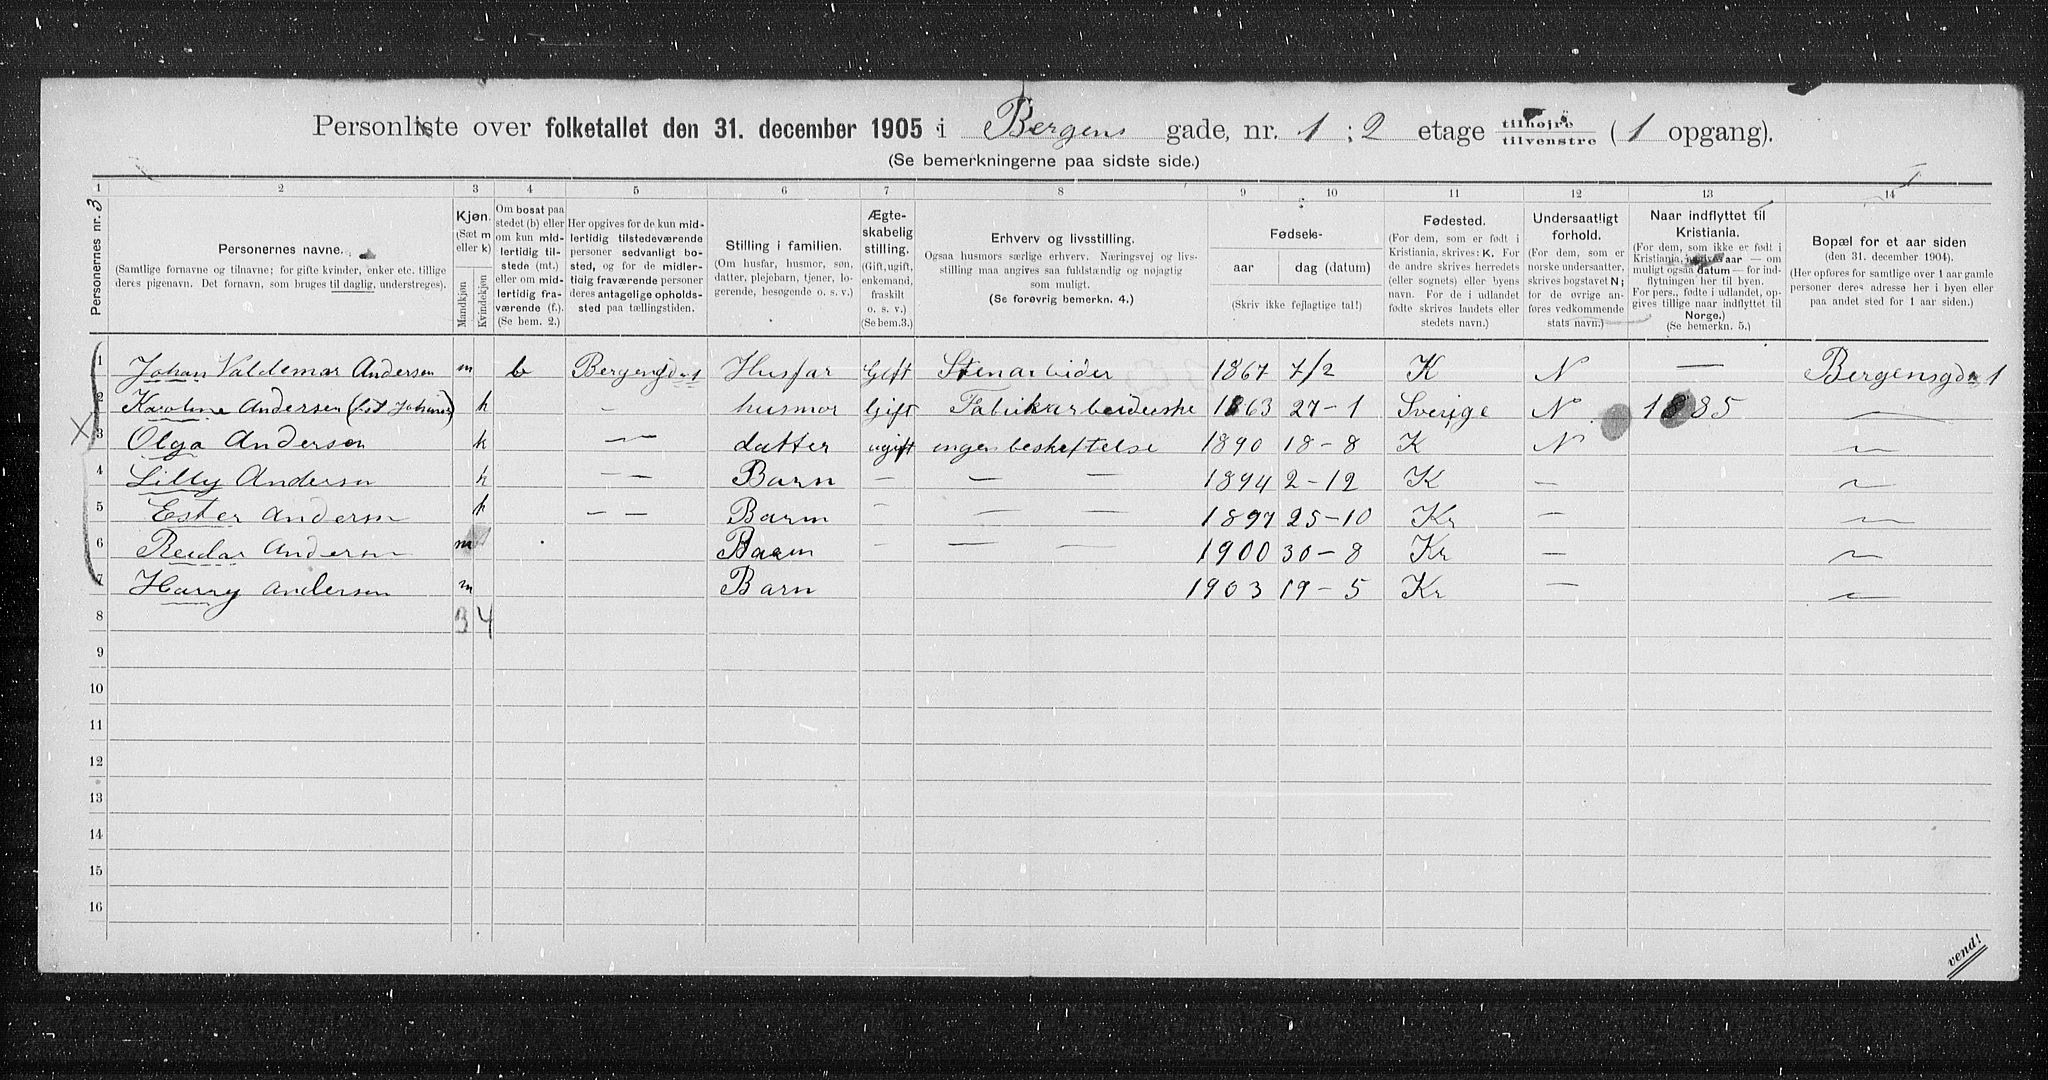 Personliste over folketallet den 31. december 1905 i Bergens gade, nr. 1 ; 2 etage tilhøjre tilvenstre ( 1 opgang).
(Se bemerkningerne paa sidste side.)
1 2 3 4 5 6 7 8 9 10 11 12 13 14
Personernes nr. 3
Personernes navne.
(Samtlige fornavne og tilnavne; for gifte kvinder, enker etc. tillige
deres pigenavn. Det fornavn, som bruges til daglig, understreges).
Kjøn.
(Sæt m
eller k)
Mandkjøn
Kvindekjøn
Om bosat paa
stedet (b) eller
om kun mid-
lertidig til-
stede (mt.)
eller om mid-
lertidig fra-
værende (f.).
(Se bem. 2.)
Her opgives for de kun mid-
lertidig tilstedeværende
personer sedvanlig bo-
sted, og for de midler-
tidig fraværende personer
deres antagelige opholds-
sted paa tællingstiden.
Stilling i familien.
(Om husfar, husmor, søn,
datter, plejebarn, tjener, lo-
gerende, besøgende o. s. v.)
Ægte-
skabelig
stilling.
(Gift, ugift,
enkemand,
fraskilt
o. s. v.)
(Se bem.3.)
Erhverv og livsstilling.
Ogsaa husmors særlige erhverv. Næringsvej og livs-
stilling maa angives saa fuldstændig og nøjagtig
som muligt.
(Se forøvrig bemerkn. 4.)
Fødsels-
aar dag (datum)
(Skriv ikke fejlagtige tal!)
Fødested.
(For dem, som er født i
Kristiania, skrives: K. For
de andre skrives herredets
(eller sognets) eller byens
navn. For de i udlandet
fødte skrives landets eller
stedets navn.)
Undersaatligt
forhold.
(For dem, som er
norske undersaatter,
skrives bogstavet N;
for de øvrige an-
føres vedkommende
stats navn.)
Naar indflyttet til
Kristiania.
(For dem, som ikke er født i
Kristiania, angives aar — om
muligt ogsaa datum — for ind-
flytningen her til byen.
For pers., fødte i udlandet, op-
gives tillige naar indflyttet til
Norge.)
(Se bemerkn. 5.)
Bopæl for et aar siden
(den 31. december 1904).
(Her opføres for samtlige over 1 aar gamle
personer deres adresse her i byen eller
paa andet sted for 1 aar siden.)
1 Johan Valdemar Andersen m b Bergensgd 1 Husfar Gift Stenarbeider 1867 7/2 K N — Bergensgda 1
2 Karoline Andersen k - husmor Gift Fabrikarbeiderske 1863 27-1 Sverige N 1885 —
3 Olga Andersen k — datter ugift ingen beskeftelse 1890 18-8 K N —
4 Lilly Andersen k — — Barn — — — 1894 2-12 K — —
5 Ester Andersn k — — Barn — — — 1897 25-10 Kr — —
6 Reidar Andersn m Barn — — — 1900 30-8 Kr — —
7 Harry Andersen m Barn 1903 19-5 Kr — —
8 3 4
9
10
11
12
13
14
15
16
vend!